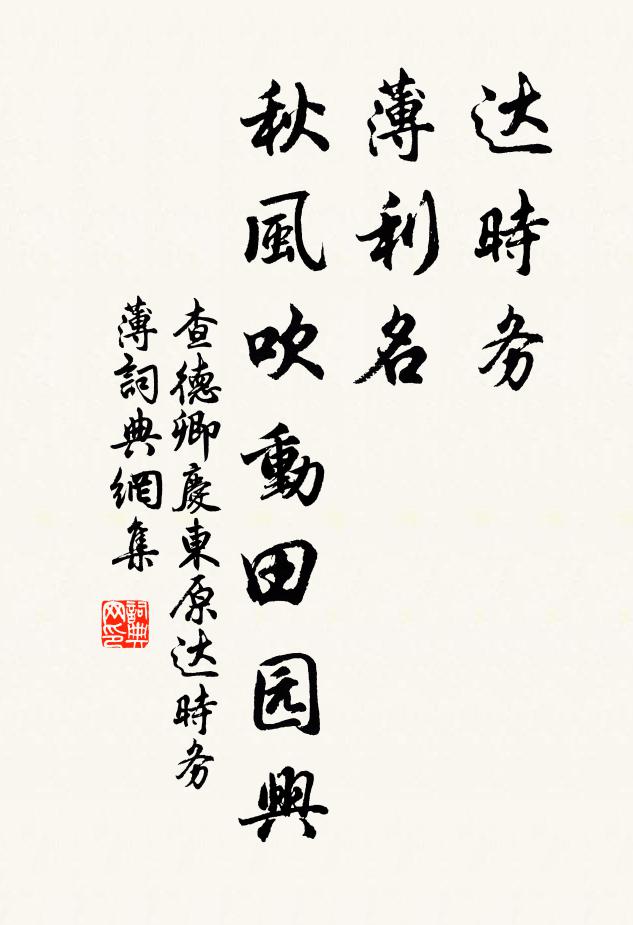 达時务
薄利名
秋風吹動田园興
查德卿慶東原达時务
薄詞典網集
詞典
网印